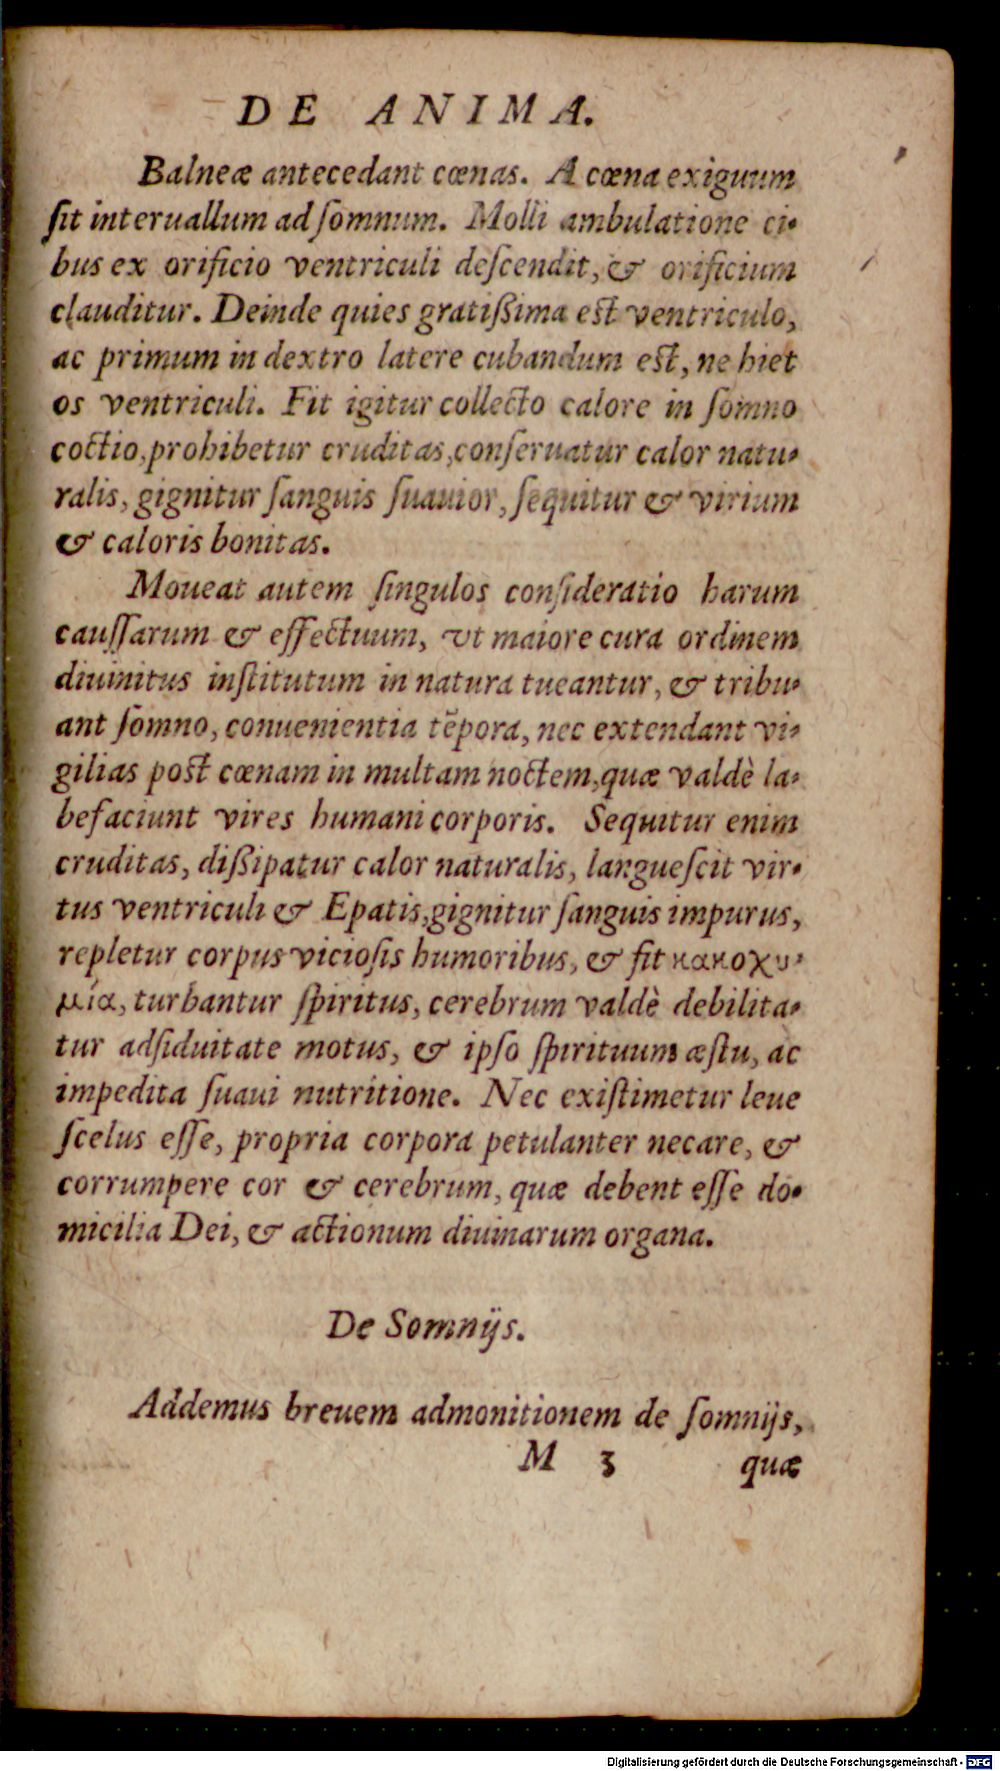 DE ANIMA.
Balneæ antecedant cœnas. A cœna exiguum
ſit interuallum ad ſomnum. Molli ambulatione ci-
bus ex orificio ventriculi deſcendit, & orificium
clauditur. Deinde quies gratiſsima eſt ventriculo,
ac primum in dextro latere cubandum eſt, ne hiet
os ventriculi. Fit igitur collecto calore in ſomno
coctio, prohibetur cruditas, conſeruatur calor natu-
ralis, gignitur ſanguis ſuauior, ſequitur & virium
& caloris bonitas.
Moueat autem ſingulos conſideratio harum
cauſſarum & effectuum, vt maiore cura ordinem
diuinitus inſtitutum in natura tueantur, & tribu-
ant ſomno, conuenientia tẽpora, nec extendant vi-
gilias poſt cœnam in multam noctem, quæ valdè la-
befaciunt vires humani corporis. Sequitur enim
cruditas, diſsipatur calor naturalis, langueſcit vir-
tus ventriculi & Epatis, gignitur ſanguis impurus,
repletur corpus vicioſis humoribus, & fit κακοχυ-
μία, turbantur ſpiritus, cerebrum valdè debilita-
tur adſiduitate motus, & ipſo ſpirituum æſtu, ac
impedita ſuaui nutritione. Nec exiſtimetur leue
ſcelus eſſe, propria corpora petulanter necare, &
corrumpere cor & cerebrum, quæ debent eſſe do-
micilia Dei, & actionum diuinarum organa.
De Somnijs.
Addemus breuem admonitionem de ſomnijs,
M 3 quæ
Digitalisierung gefördert durch die Deutsche Forschungsgemeinschaft - DFG